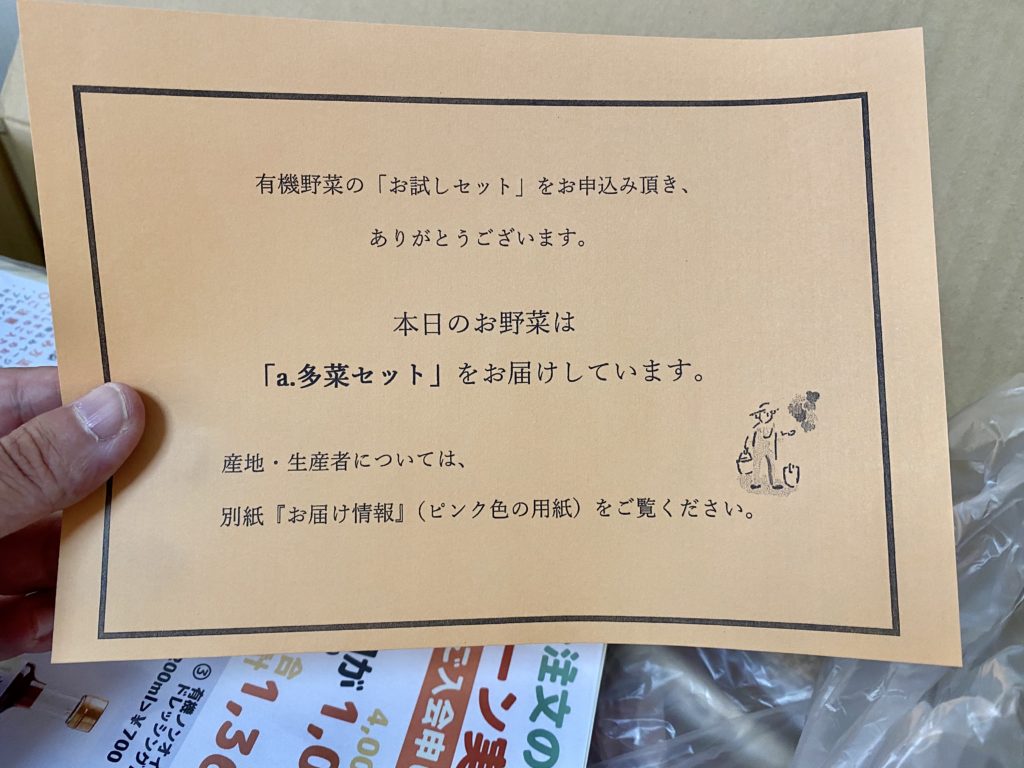 有機野菜の「お試しセット」をお申込み頂き、
ありがとうございます。
本日のお野菜は
「a.多菜セット」をお届けしています。
産地・生産者については、
別紙『お届け情報』（ピンク色の用紙）をご覧ください。
注文の
ーン実
入会申
4,00
が1,0
合
1,30
③有機ノンオイ
ドレッシング
¥700